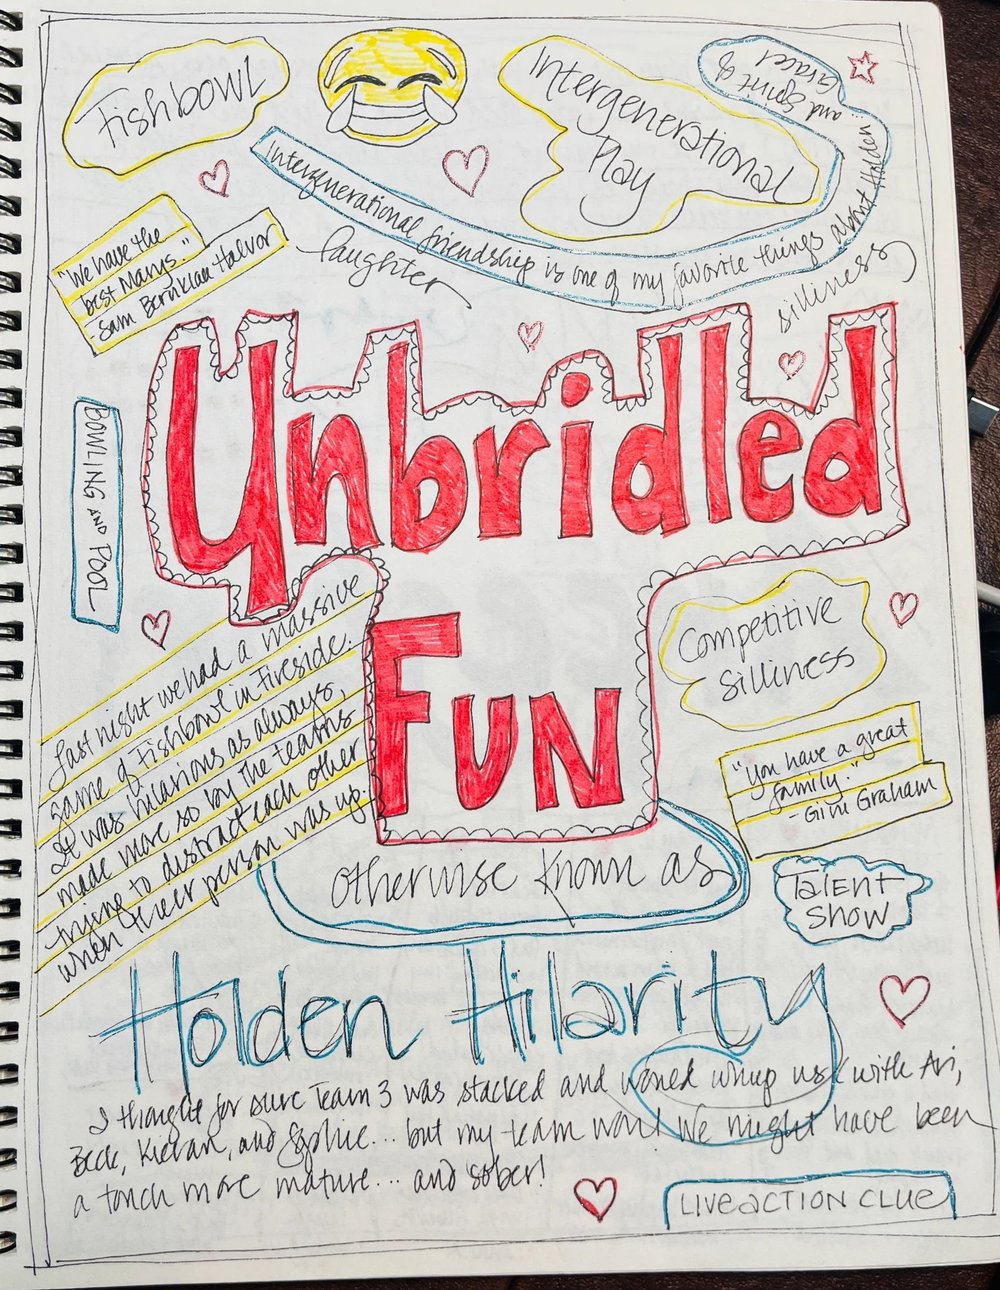 Fishbowl
Intergenerational
Play
Intergenerational friendship is one of my favorite things about Holden
and spirit of
Grace!
"We have the
best Marys."
- Sam Beruklaa Halvor
laughter
silliness
Unbridled
Fun
BOWLING AND POOL
Last night we had a massive
game of Fishbowl in Fireside.
It was hilarious as always,
made more so by the teams
trying to distract each other
when their person was up.
Competitive
Silliness
"You have a great
family."
- Gini Graham
otherwise known as
TALENT
SHOW
Holden Hilarity
I thought for sure Team 3 was stacked and would whup us (with Ari,
Beck, Kieran, and Sophie... but my team won! We might have been
a touch more mature... and sober!
LIVE ACTION CLUE